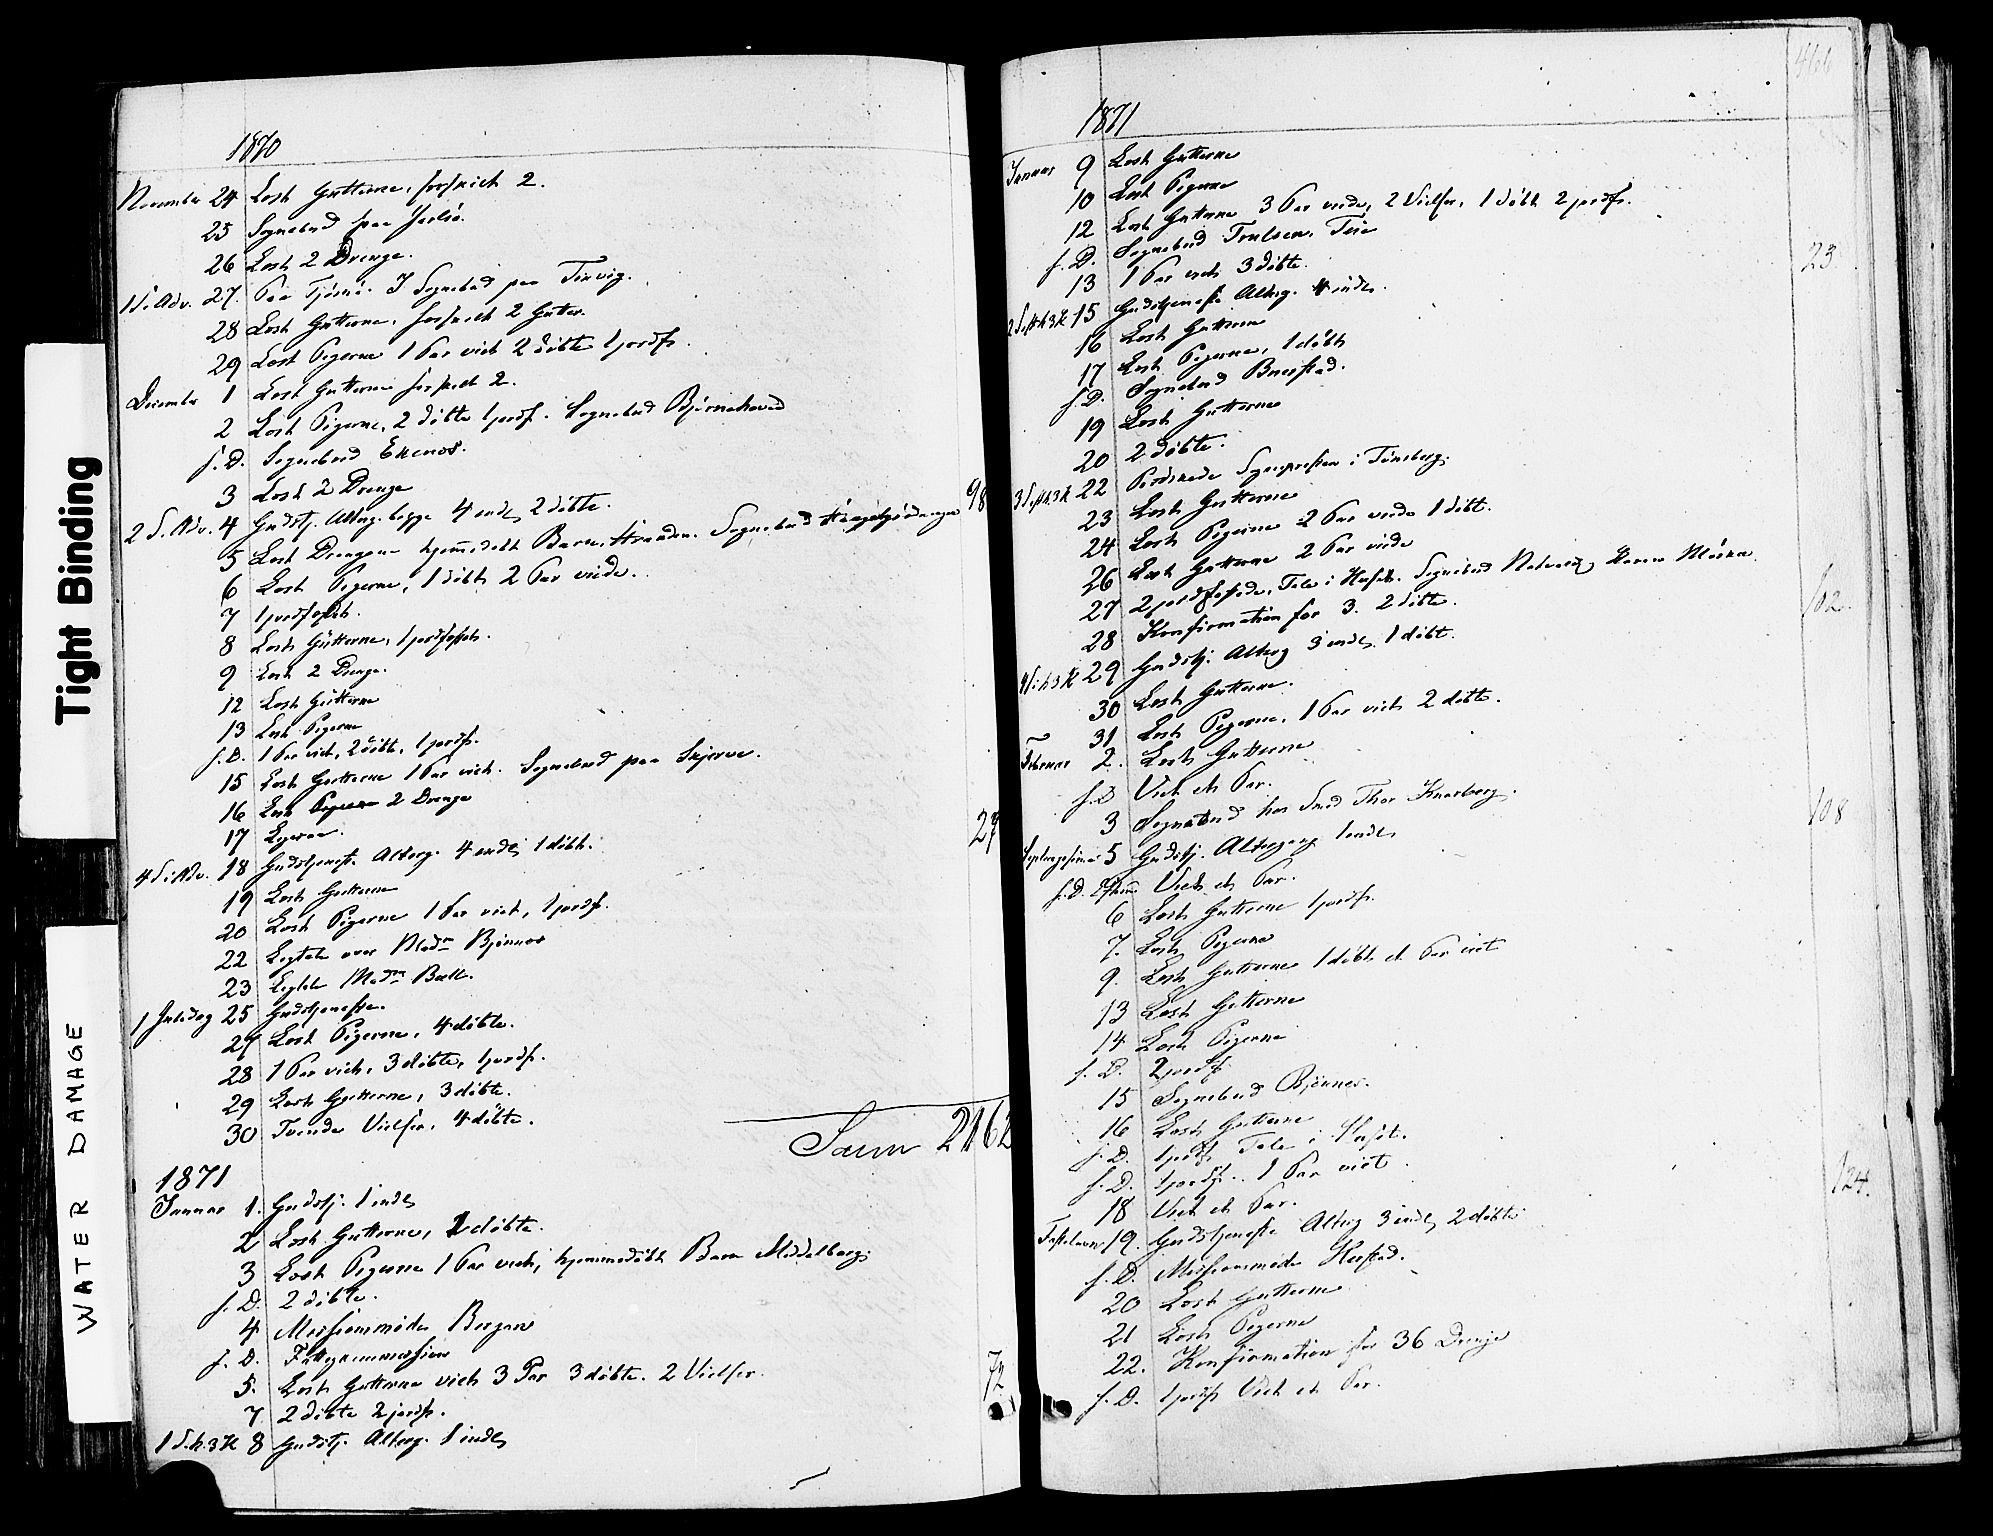 Tight Binding
WATER DAMAGE
1870
November 24 Læst Gutterne, forfrielt 2.
25 Sognebud paa Jarlsø.
26 Læst 2 Drenge.
1 S. i Adv. 27. Paa Tjømø. I Sognebud paa Tinvig.
28 Læst Gutterne,
29 Læst Pigerne 1 Par viet 2 døbte 1 jordf.
December 1 Læst Gutterne
2 Læst Pigerne, 2 døbte 1 jordf. Sognebud Bjørnehoved
s. D. Sognebud Ekenes.
3 Læst 2 Drenge
2 S. Adv. 4 Gudstj. Alterg. begge 4 indl. 2 døbte. 98
5 Læst Drengene hjemmedøbt Barn, Sognebud
6 Læst Pigerne, 1 døbt 2 Par viede.
7 1 jordfæstet.
8 Læst Gutterne, 1 jordfæstet.
9 Læst 2 Drenge.
12 Læst Gutterne
13 Læst Pigerne
s. D. 1 Par viet, 2 døbt, 1 jordf.
15 Læst Gutterne 1 Par viet. Sognebud paa Skjerve.
16 Læst Pigerne 2 Drenge
17 Ligesaa.
4 S. i Adv. 18 Gudstjeneste Alterg. 4 indl. 1 døbt. 27
19 Læst Gutterne
20 Læst Pigerne 1 Par viet, 1 jordf.
22 Ligtale over Mad. Bjønnes
23 Ligtale Mad. Bull.
1 Juledag 25 Gudstjeneste.
27 Læst Pigerne, 4 døbte.
28 1 Par viet, 3 døbte, 1 jordf.
29 Læst Gutterne, 3 døbte.
30 Tvende Vielser, 4 døbte.
Sum 2162
1871
Januar 1. Gudstj. 1 indl.
2 Læst Gutterne, 2 døbte.
3 Læst Pigerne 1 Par viet, hjemmedøbt Barn Meddelberg
s. D. 2 døbte.
4 Missionsmøde Bergan
s. D. Fattigkommission
5. Læst Gutterne viet 3 Par 3 døbte. 2 Vielser. 72
7 2 døbte 2 jordf.
1 S. h. 3 K 8 Gudstj. Alterg. 1 indl.
466
1871
Januar 9 Læst Gutterne
10 Læst Pigerne
12 Læst Gutterne 3 Par viede, 2 Vielser, 1 døbt 2 jordf.
s. D. Sognebud Poulsen, Teie
13 1 Par viet 3 døbte. 23
2 S. eft. h 3 K 15 Gudstjeneste Alterg. 4 indl.
16 Læst Gutterne
17 Læst Pigerne, 1 døbt
s. D. Sognebud Buerstad.
19 Læst Gutterne
20 2 døbte.
3 S. eft. h 3 K 22 Prædikede Sognepresten i Tønsberg.
23 Læst Gutterne
24 Læst Pigerne 2 Par viede 1 døbt.
26 Læst Gutterne 2 Par viede
27 2 jordfæstede, Tale i Huset. Sognebud
28 Konfirmation for 3. 2 døbte. 102
4 S. h 3 K 29 Gudstj. Alterg 3 indl. 1 døbt.
30 Læst Gutterne.
31 Læst Pigerne, 1 Par viet 2 døbte.
Februar 2. Læst Gutterne
s. D Viet et Par.
3 Sognebud hos Smed Thor Knarberg. 108
Septuagesima 5 Gudstj. Altergang 1 indl.
s. D. Efterm. Viet et Par.
6 Læst Gutterne 1 jordf.
7. Læst Pigerne
9. Læst Gutterne 1 døbt et Par viet
13 Læst Gutterne
14 Læst Pigerne
s. D. 2 jordf
15 Sognebud Bjønnes.
16 Læst Gutterne
s. D. 1 jordf. Tale i Huset.
s. D. 1 jordf. 1 Par viet
18 Viet et Par. 124.
Fastelavn 19. Gudstjeneste Alterg 3 indl. 2 døbte
s. D. Missionsmøde Herstad.
20 Læst Gutterne
21 Læst Pigerne
22. Konfirmation for 36 Drenge
s. D. 1 jordf. Viet et Par.